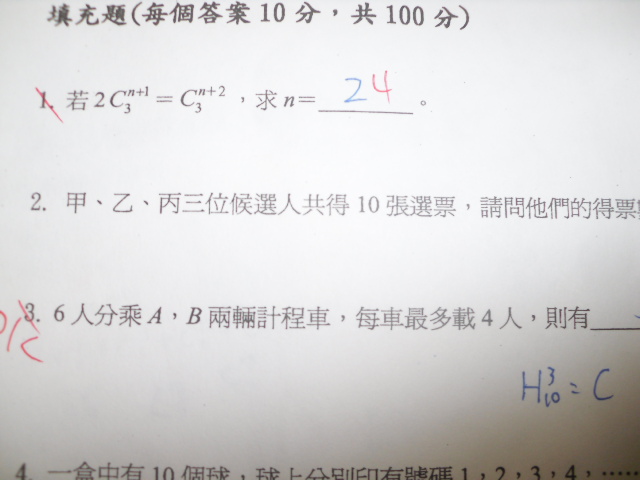 填充題(每個答案 10 分，共 100 分)
1. 若 2C₃ⁿ⁺¹ = C₃ⁿ⁺²，求 n= 2 4 。
2. 甲、乙、丙三位候選人共得 10 張選票，請問他們的得票
3. 6 人分乘 A，B 兩輛計程車，每車最多載 4 人，則有
H³₁₀ = C
4. 一盒中有 10 個球，球上分別印有號碼 1，2，3，4，……